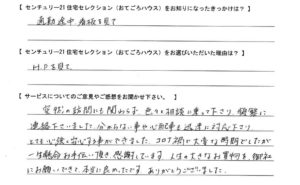 【 センチュリー21 住宅セレクション（おてごろハウス）をお知りになったきっかけは？ 】
通勤途中 看板を見て
【 センチュリー21 住宅セレクション（おてごろハウス）をお選びいただいた理由は？ 】
H.Pを見て
【 サービスについてのご意見やご感想をお聞かせ下さい。 】
突然の訪問にも関わらず 色々と相談に乗って下さり 頻繁に
連絡下さいました。分からない事や心配事も迅速に対応下さり
とても心強く安心する事ができました。コロナ禍に大変な時期でしたが
一生懸命お手伝い頂き 感謝しています。人生の大きなお買物を 御社
にお願いできて、本当に良かったです。ありがとうございました。